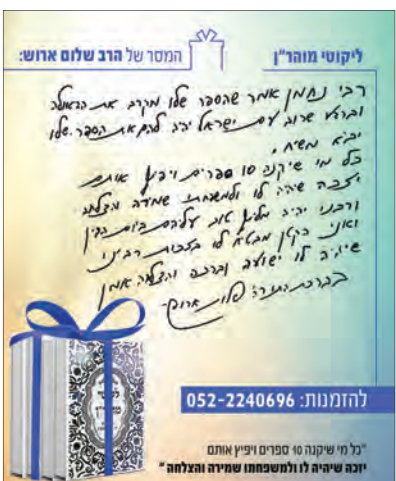 ליקוטי מוהר"ן
המסר של הרב שלום ארוש:
רבי נחמן אמר שהספר שלו מקרב את הגאולה
וברגע שרוב עם ישראל יהיה להם את הספר שלו
יבא משיח.
כל מי שיקנה 10 ספרים ויפיץ אותם
יזכה שיהיה לו ולמשפחתו שמירה והצלחה
ורבנו יהיה מליץ טוב עליהם ביום הדין
ואני הקטן מבטיח לו בזכות רבינו
שיהיה לו ישועה וברכה והצלחה אמן
בברכת התורה שלום ארוש
להזמנות: 052-2240696
"כל מי שיקנה 10 ספרים ויפיץ אותם
יזכה שיהיה לו ולמשפחתו שמירה והצלחה"